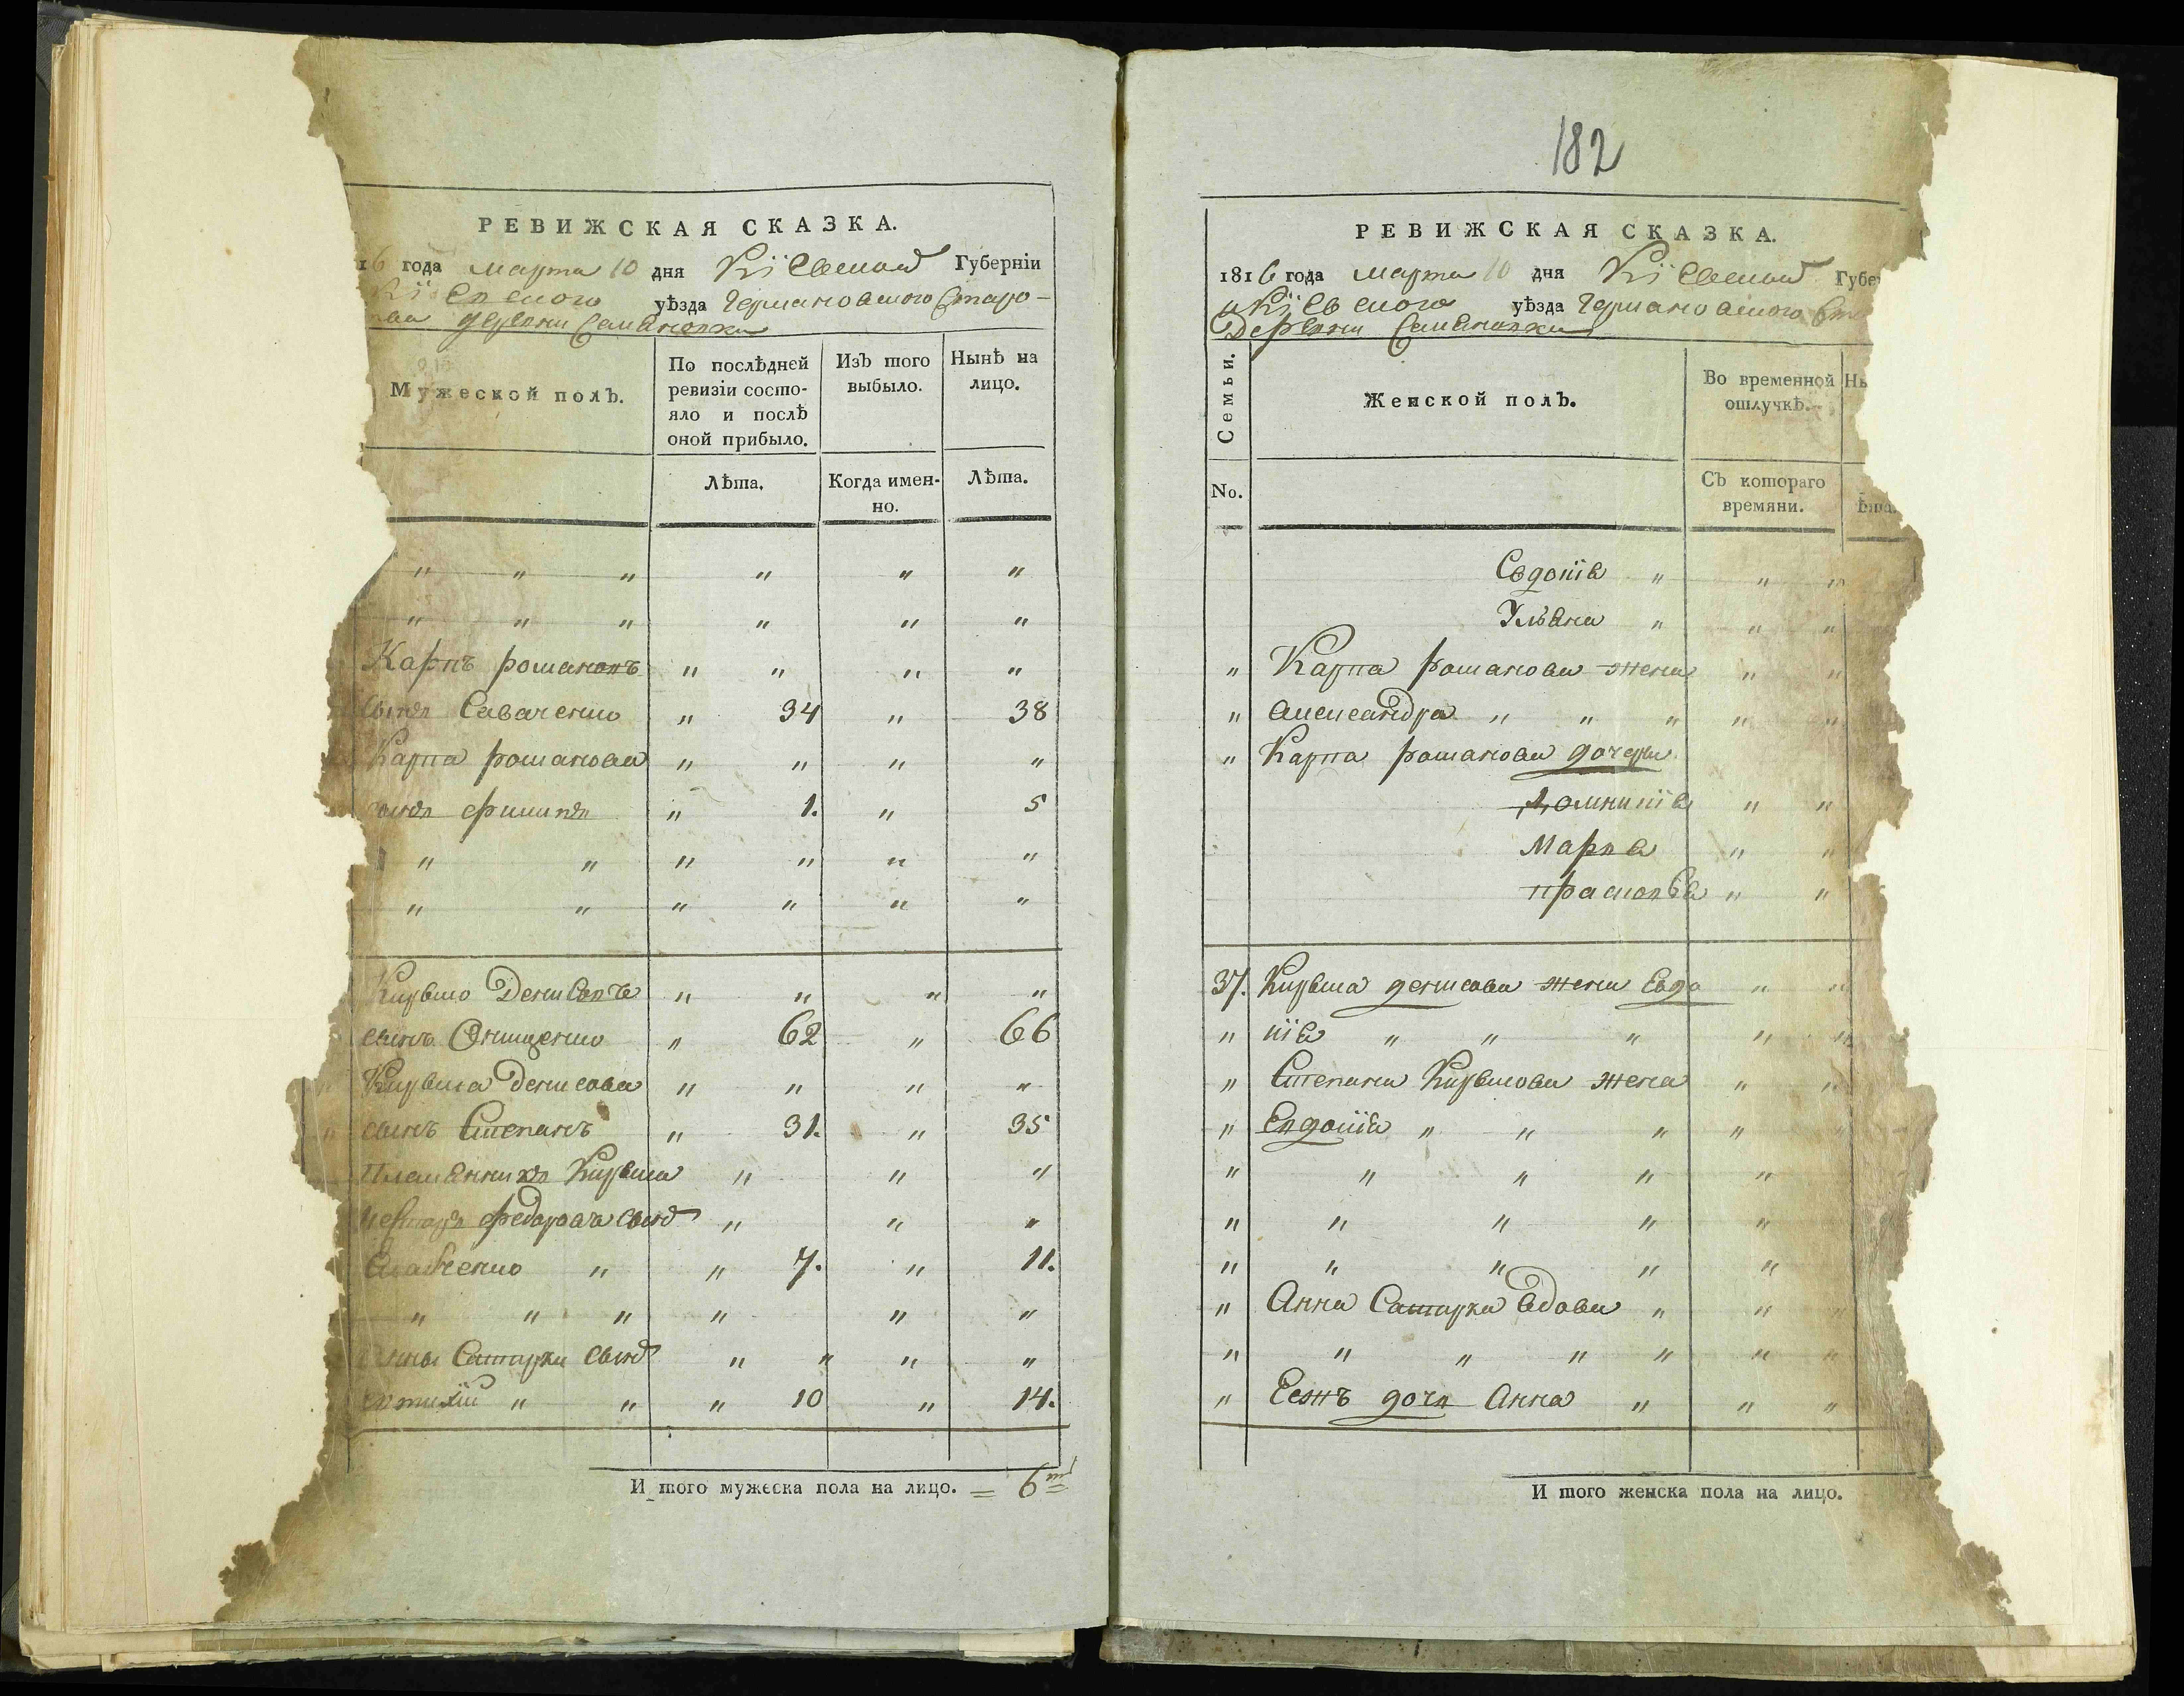 РЕВИЖСКАЯ СКАЗКА.
16 года марта 10 дня Кіевской Губерніи
Кіевского уѣзда Германовского Старо-
ства деревни Семеновки
Мужеской полъ.
По послѣдней
ревизіи состо-
яло и послѣ
оной прибыло.
Изъ того
выбыло.
Нынѣ на
лицо.
Лѣта.
Когда имен-
но.
Лѣта.
" " " " " "
" " " " " "
Карпъ романовъ " " " "
сынъ Савченко " 34 " 38
Карпа романова " " " "
сынъ филипъ " 1. " 5
" " " " " "
" " " " " "
Кирѣло Денисовъ " " " "
сынъ Онищенко " 62 " 66
Кирѣла Денисова " " " "
сынъ Степанъ " 31. " 35
племянникъ Кирѣла " " "
федоровъ сынъ " " "
" " 7. " 11.
" " " " " "
Анны сынъ " " " "
евтихій " " " 10 " 14.
И того мужеска пола на лицо. = 6
182
РЕВИЖСКАЯ СКАЗКА.
1816 года марта 10 дня Кіевской Губе
Кіевского уѣзда Германовского Ст
Деревни Семеновки
Семьи.
Женской полъ.
Во временной
отлучкѣ.
Нь
No.
Съ котораго
времяни.
ѣта.
Евдокія " " "
Ульяна " " "
" Карпа романова жена " "
" александра " " " " "
" Карпа романова дочери
Домникія " "
Марья " "
прасковья " "
37. Кирѣла денисова жена Евдо " "
" кія " " " " "
" Степана Кирѣлова жена " "
" Евдокія " " " "
" " " " "
" " " " "
" " " " "
" Анна вдова " " "
" " " " " " "
" Ееже дочь Анна " " "
И того женска пола на лицо.